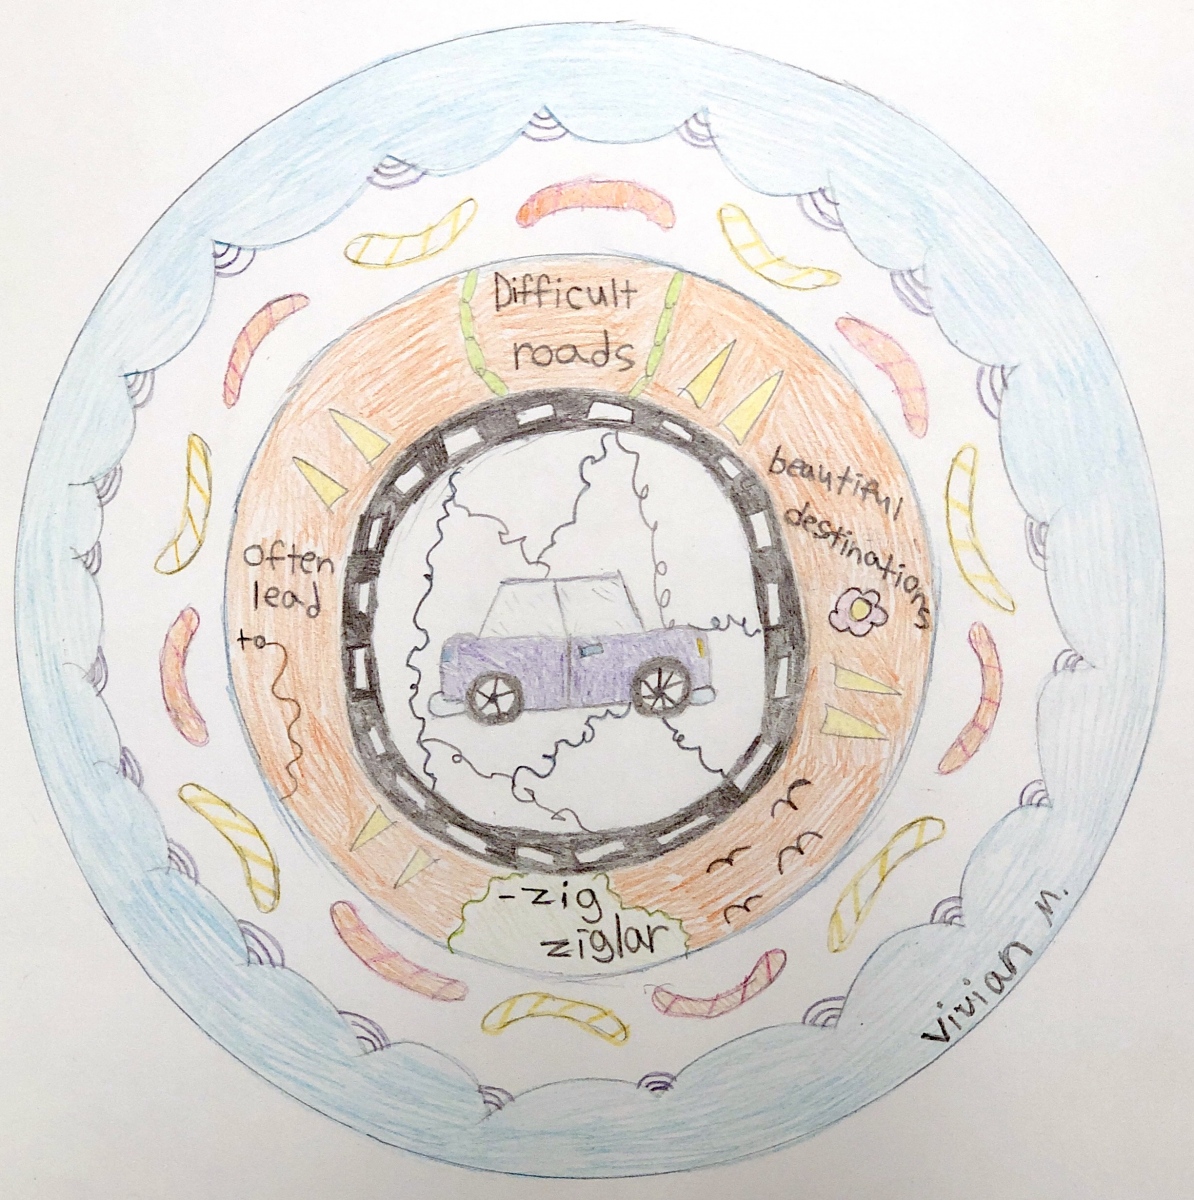 Difficult
roads
often
lead
to
beautiful
destinations
-zig
ziglar
Vivian M.